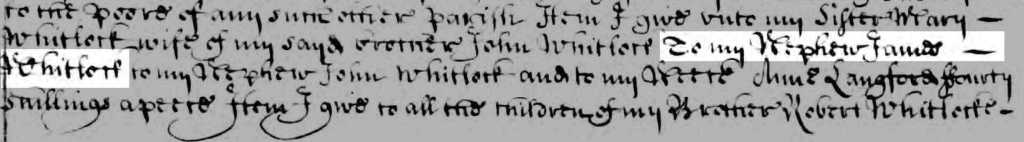 to the poore of any such other parish Item I give unto my Sister Mary –
Whitlock wife of my said brother John Whitlock To my Nephew James –
Whitlock to my Nephew John Whitlock and to my Neece Anne Langford fourty
shillings a peece Item I give to all the children of my Brother Robert Whitlocke –